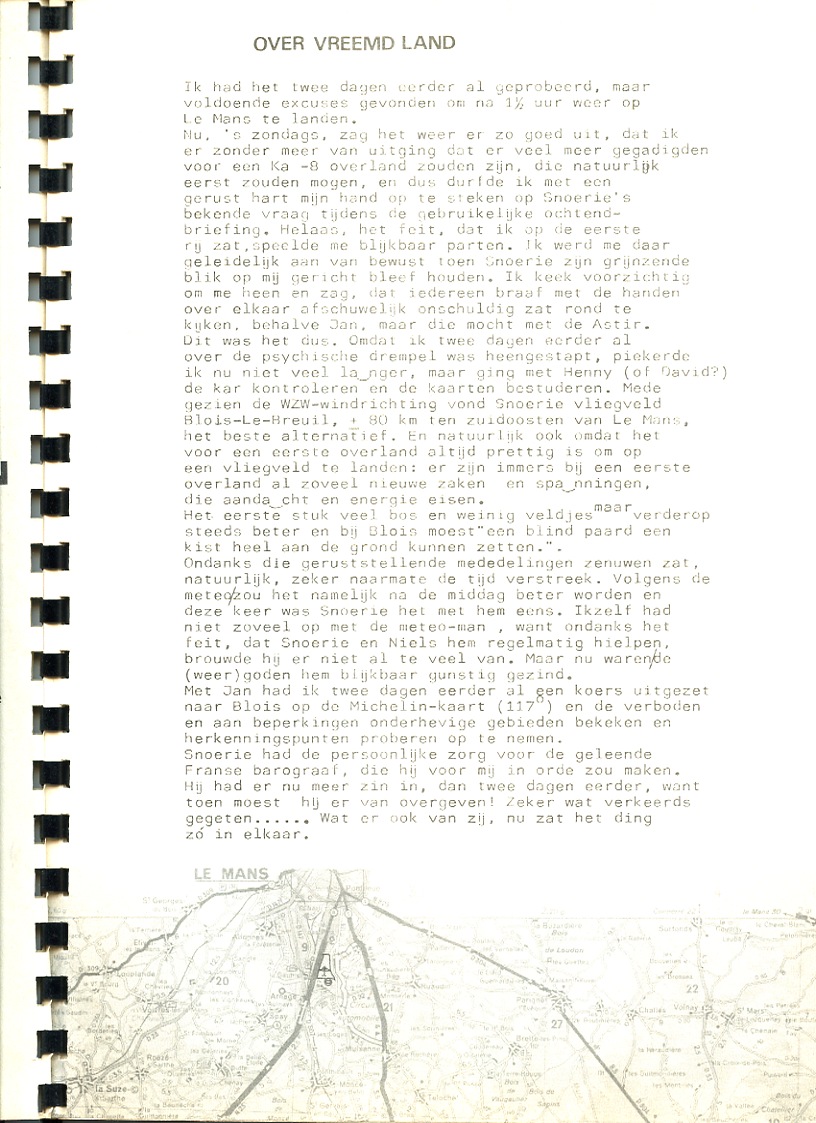 OVER VREEMD LAND
Ik had het twee dagen eerder al geprobeerd, maar
voldoende excuses gevonden om na 1½ uur weer op
Le Mans te landen.
Nu, 's zondags, zag het weer er zo goed uit, dat ik
er zonder meer van uitging dat er veel meer gegadigden
voor een Ka -8 overland zouden zijn, die natuurlijk
eerst zouden mogen, en dus durfde ik met een
gerust hart mijn hand op te steken op Snoerie's
bekende vraag tijdens de gebruikelijke ochtend-
briefing. Helaas, het feit, dat ik op de eerste
rij zat,speelde me blijkbaar parten. Ik werd me daar
geleidelijk aan van bewust toen Snoerie zijn grijnzende
blik op mij gericht bleef houden. Ik keek voorzichtig
om me heen en zag, dat iedereen braaf met de handen
over elkaar afschuwelijk onschuldig zat rond te
kijken, behalve Jan, maar die mocht met de Astir.
Dit was het dus. Omdat ik twee dagen eerder al
over de psychische drempel was heengestapt, piekerde
ik nu niet veel la‿nger, maar ging met Henny (of David?)
de kar kontroleren en de kaarten bestuderen. Mede
gezien de WZW-windrichting vond Snoerie vliegveld
Blois-Le-Breuil, ± 80 km ten zuidoosten van Le Mans,
het beste alternatief. En natuurlijk ook omdat het
voor een eerste overland altijd prettig is om op
een vliegveld te landen: er zijn immers bij een eerste
overland al zoveel nieuwe zaken en spa‿nningen,
die aanda‿cht en energie eisen.
Het eerste stuk veel bos en weinig veldjes maar verderop
steeds beter en bij Blois moest"een blind paard een
kist heel aan de grond kunnen zetten.".
Ondanks die geruststellende mededelingen zenuwen zat,
natuurlijk, zeker naarmate de tijd verstreek. Volgens de
meteo/zou het namelijk na de middag beter worden en
deze keer was Snoerie het met hem eens. Ikzelf had
niet zoveel op met de meteo-man , want ondanks het
feit, dat Snoerie en Niels hem regelmatig hielpen,
brouwde hij er niet al te veel van. Maar nu waren/de
(weer)goden hem blijkbaar gunstig gezind.
Met Jan had ik twee dagen eerder al een koers uitgezet
naar Blois op de Michelin-kaart (117°) en de verboden
en aan beperkingen onderhevige gebieden bekeken en
herkenningspunten proberen op te nemen.
Snoerie had de persoonlijke zorg voor de geleende
Franse barograaf, die hij voor mij in orde zou maken.
Hij had er nu meer zin in, dan twee dagen eerder, want
toen moest hij er van overgeven! Zeker wat verkeerds
gegeten...... Wat er ook van zij, nu zat het ding
zó in elkaar.
LE MANS
St Georges
Louplande
Allonnes
Arnage
Roézé
la Suze
Mulsanne
Parigné
Challes
Volnay
St Mars
Surfonds
Ruaudin
Téloché
Brette-les-Pins
20
9
21
27
22